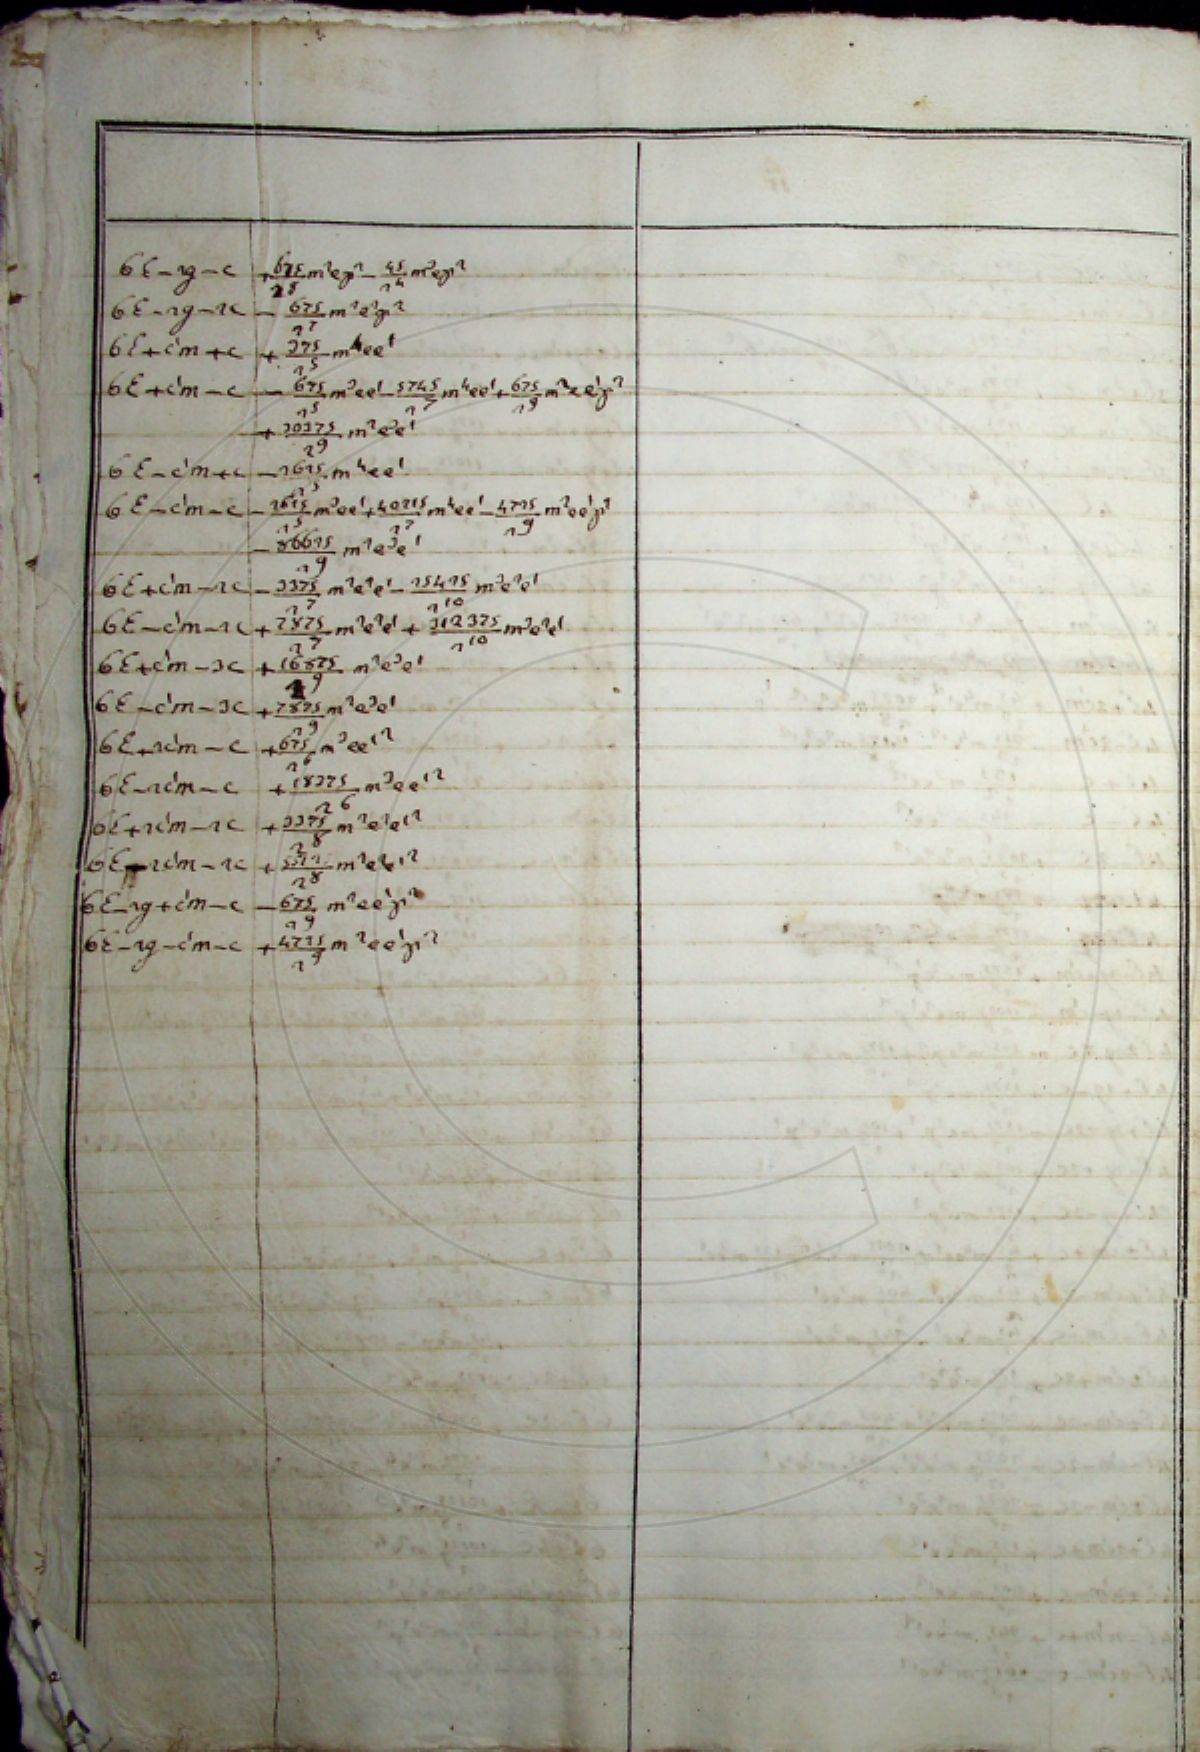 6E−2g−c +675/2⁵ m²eγ² − 45/2⁴ m³eγ²
6E−2g−2c −675/2⁷ m²e²γ²
6E+c'm+c +375/2⁵ m⁴ee'
6E+c'm−c −675/2⁵ m³ee' − 5745/2⁷ m⁴ee' + 675/2⁹ m²ee'γ²
+20375/2⁹ m²e³e'
6E−c'm+c −2625/2⁵ m⁴ee'
6E−c'm−c −2625/2⁵ m³ee' + 40215/2⁷ m⁴ee' − 4725/2⁹ m²ee'γ²
−86625/2⁹ m²e³e'
6E+c'm−2c −3375/2⁷ m²e²e' − 25425/2¹⁰ m³e²e'
6E−c'm−2c +7875/2⁷ m²e²e' + 312375/2¹⁰ m³e²e'
6E+c'm−3c +16875/2⁹ m²e³e'
6E−c'm−3c +7875/2⁹ m²e³e'
6E+2c'm−c +675/2⁶ m³ee'²
6E−2c'm−c +18375/2⁶ m³ee'²
6E+2c'm−2c +3375/2⁸ m²e²e'²
6E−2c'm−2c m²e²e'²
6E−2g+c'm−c −675/2⁹ m²ee'γ²
6E−2g−c'm−c +4725/2⁹ m²ee'γ²